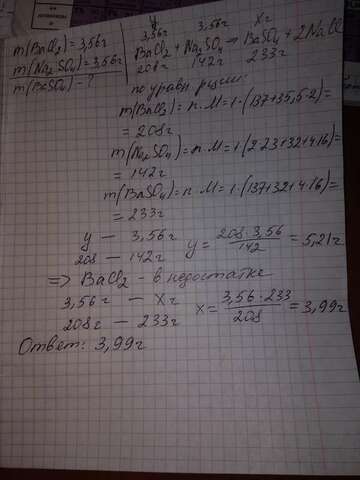 m(BaCl₂)=3,56г
m(Na₂SO₄)=3,56г
m(BaSO₄)-?
y
3,56г 3,56г xг
BaCl₂+Na₂SO₄→BaSO₄+2NaCl
208г 142г 233г
по уравн. р-ции:
m(BaCl₂)=n·M=1·(137+35,5·2)=
=208г
m(Na₂SO₄)=n·M=1·(2·23+32+4·16)=
=142г
m(BaSO₄)=n·M=1·(137+32+4·16)=
=233г
y — 3,56г
208 — 142г
y=208·3,56/142=5,21г
=> BaCl₂ - в недостатке
3,56г — xг
208г — 233г
x=3,56·233/208=3,99г
Ответ: 3,99г